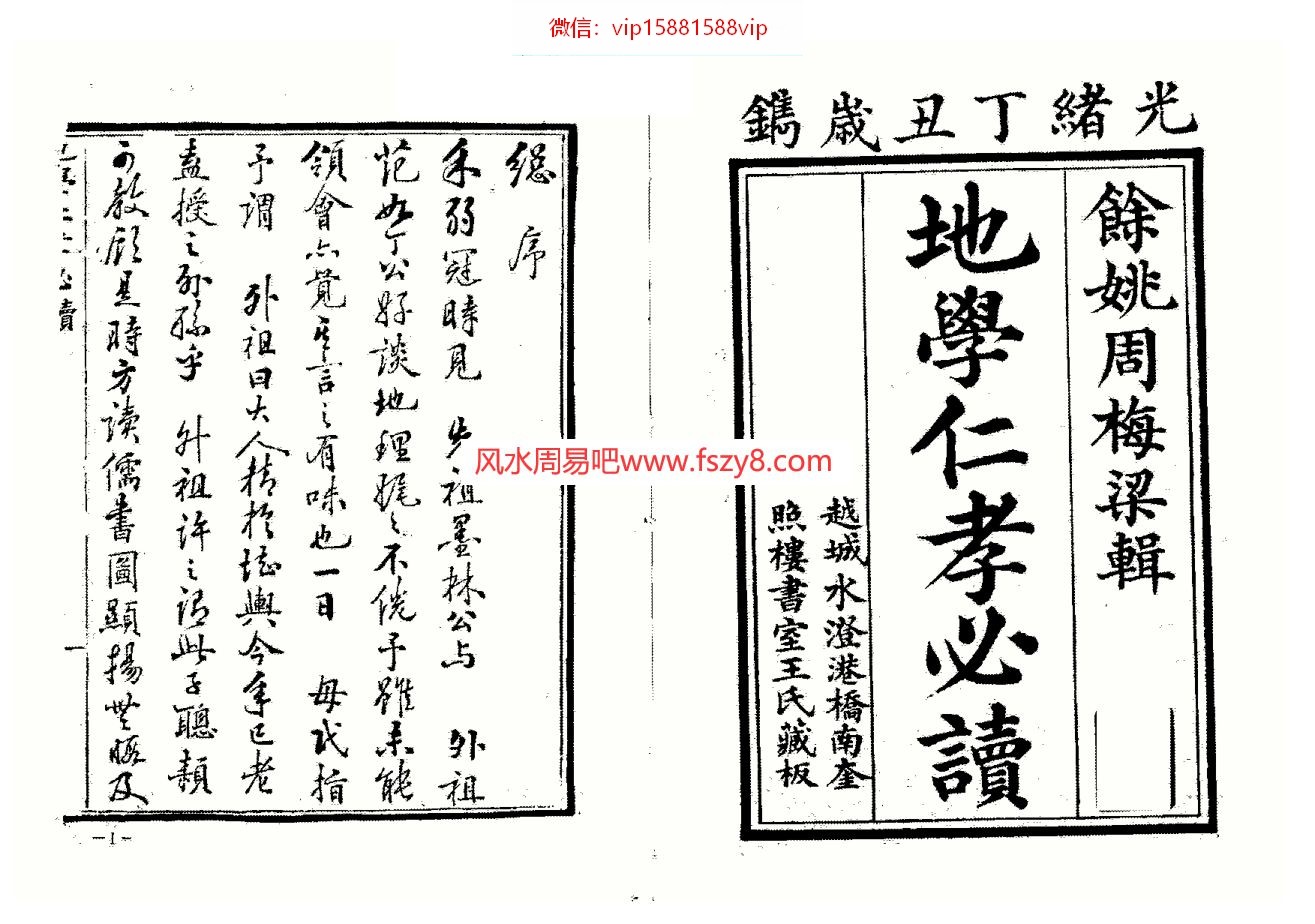 微信：vip15881588vip
光緒丁丑歲鐫
餘姚周梅梁輯
地學仁孝必讀
越城水澄港橋南奎
照樓書室王氏藏板
風水周易吧www.fszy8.com
總序
余弱冠時見 先祖墨林公与 外祖
范如丁公好談地理娓〻不倦予雖未能
領會亦覺其言之有味也一日 母氏指
予謂 外祖曰大人精於堪輿今年已老
盍授之外孫乎 外祖許之謂此子聰穎
可教顧是時方讀儒書圖顯揚無暇及
必讀
一
-1-